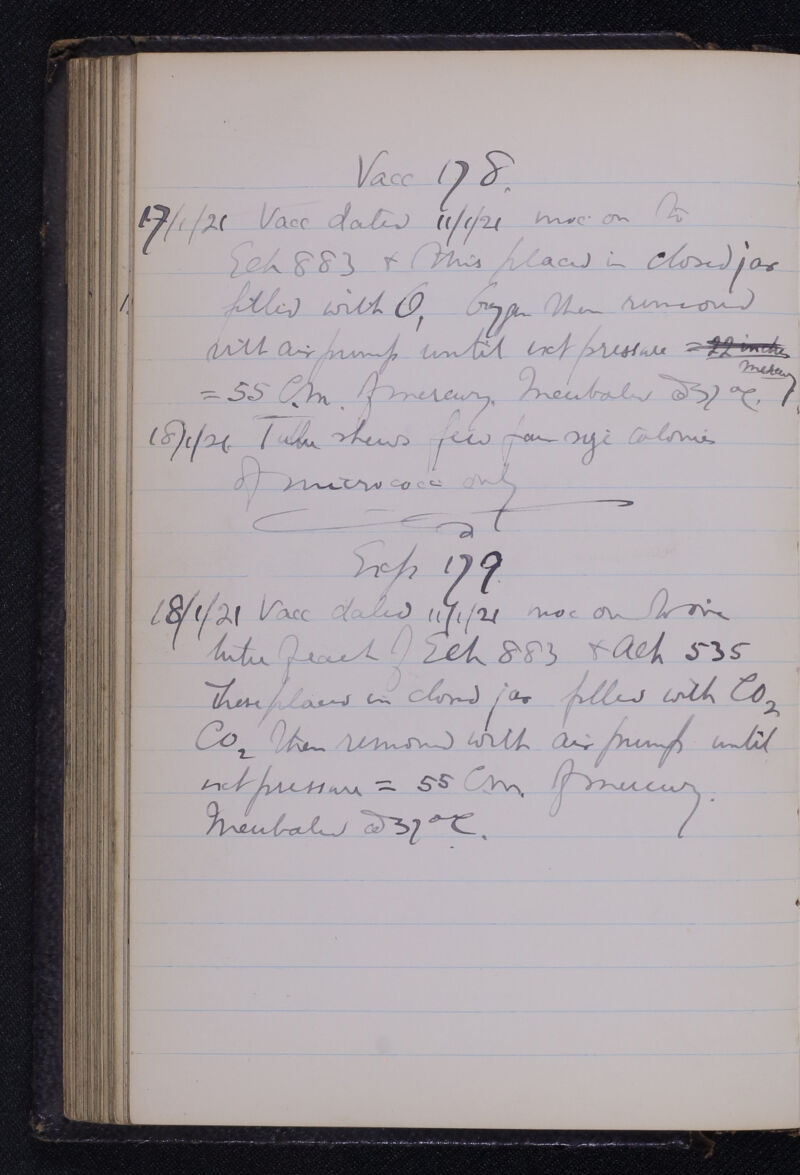 Vacc 178.
17/1/21 Vacc dated 11/1/21 inoc on to
Ech 883 & this placed in closed jar
filled with O, Oxygen then removed
with air pump until net pressure = 22 inches
mercury
= 55 C.m. of mercury. Incubated @ 37°C.
18/1/21 Tube shews few fair size colonies
of micrococci only
Exp 179
18/1/21 Vacc dated 11/1/21 inoc on to one
tube of each of Ech 883 & Ach 535
These placed in closed jar filled with CO2
CO2 then removed with air pump until
net pressure = 55 Cm. of mercury.
Incubated @ 37°C.